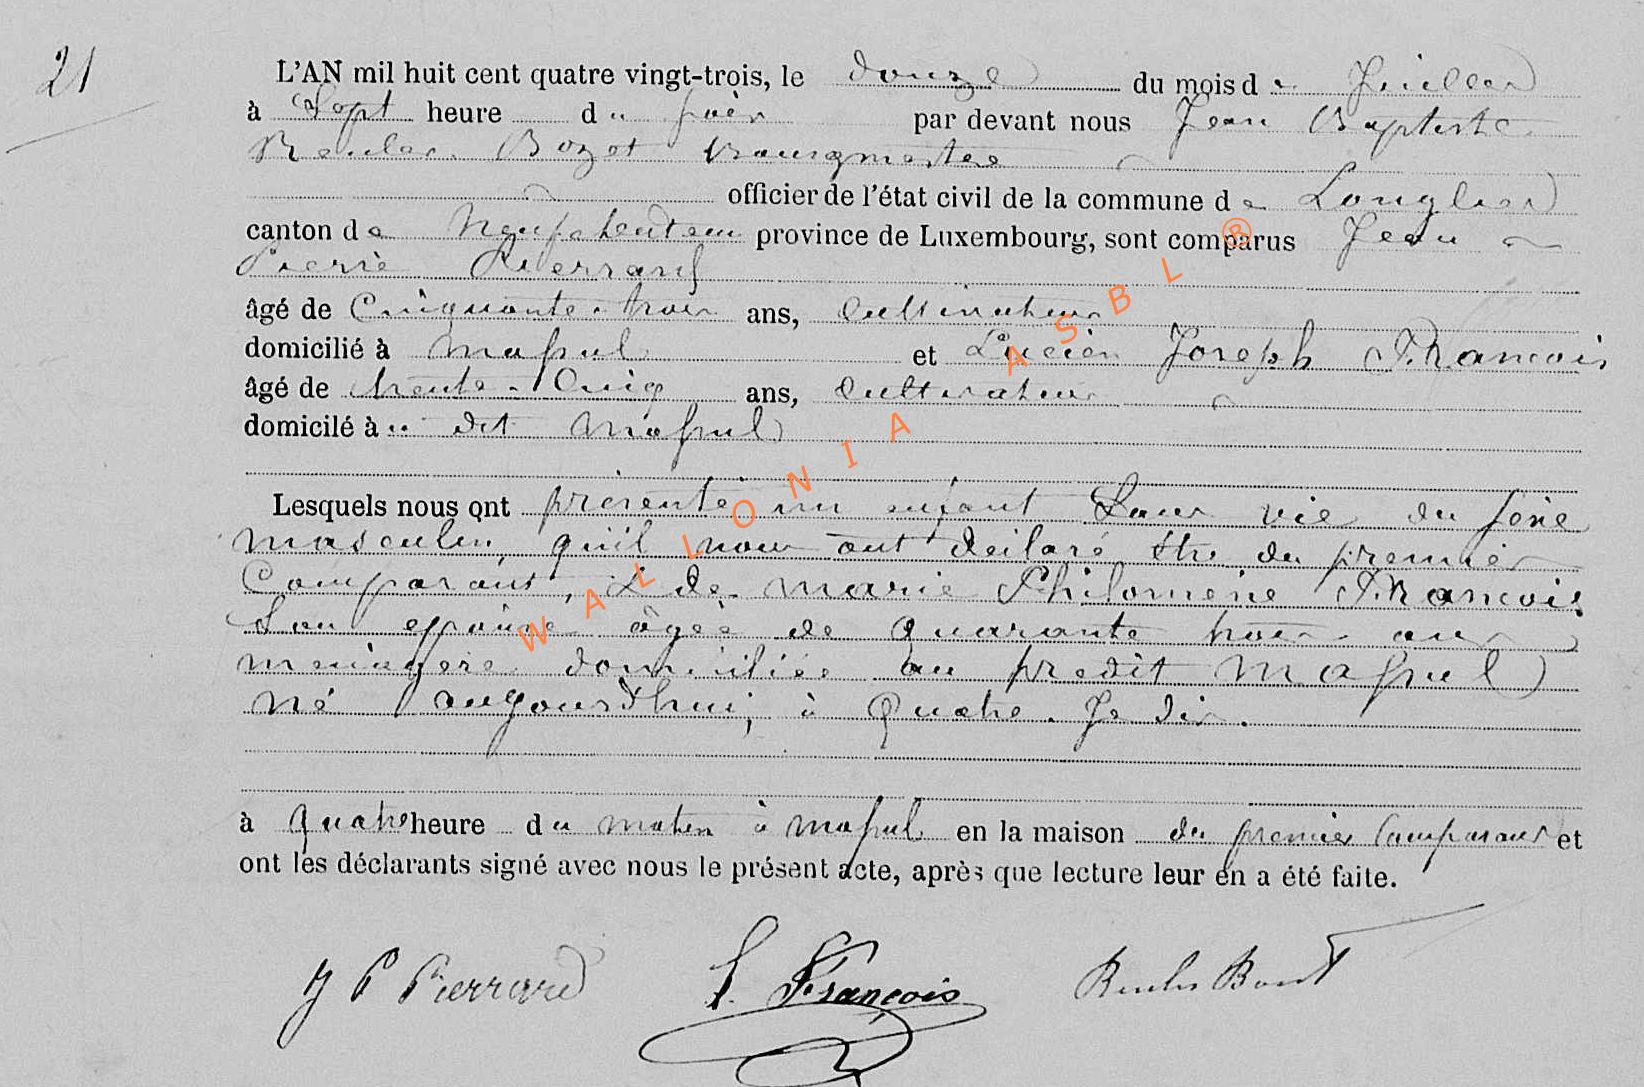 21
L'AN mil huit cent quatre vingt-trois, le douze du mois de Juillet
à Sept heure du soir par devant nous Jean Baptiste
Reuler Bozet bourgmestre
officier de l'état civil de la commune de Longlier
canton de Neufchateau province de Luxembourg, sont comparus Jean
Pierre Pierrard
âgé de Cinquante-trois ans, Cultivateur
domicilié à Maspul et Lucien Joseph François
âgé de trente-Cinq ans, Cultivateur
domicilé à u dit Maspul
Lesquels nous ont présenté un enfant Sans vie du sexe
masculin, qu'il nous ont déclaré être du premier
Comparant, & de Marie Philomène François
Son epouse âgée de quarante trois ans
menagere domiciliée au predit Maspul
né aujourd'hui, à Quatre. Je dis.
à quatre heure du matin à Maspul en la maison du premier Comparant et
ont les déclarants signé avec nous le présent acte, après que lecture leur en a été faite.
J P Pierrard L. François Reuler Bozet
WALLONIA ASBL ®